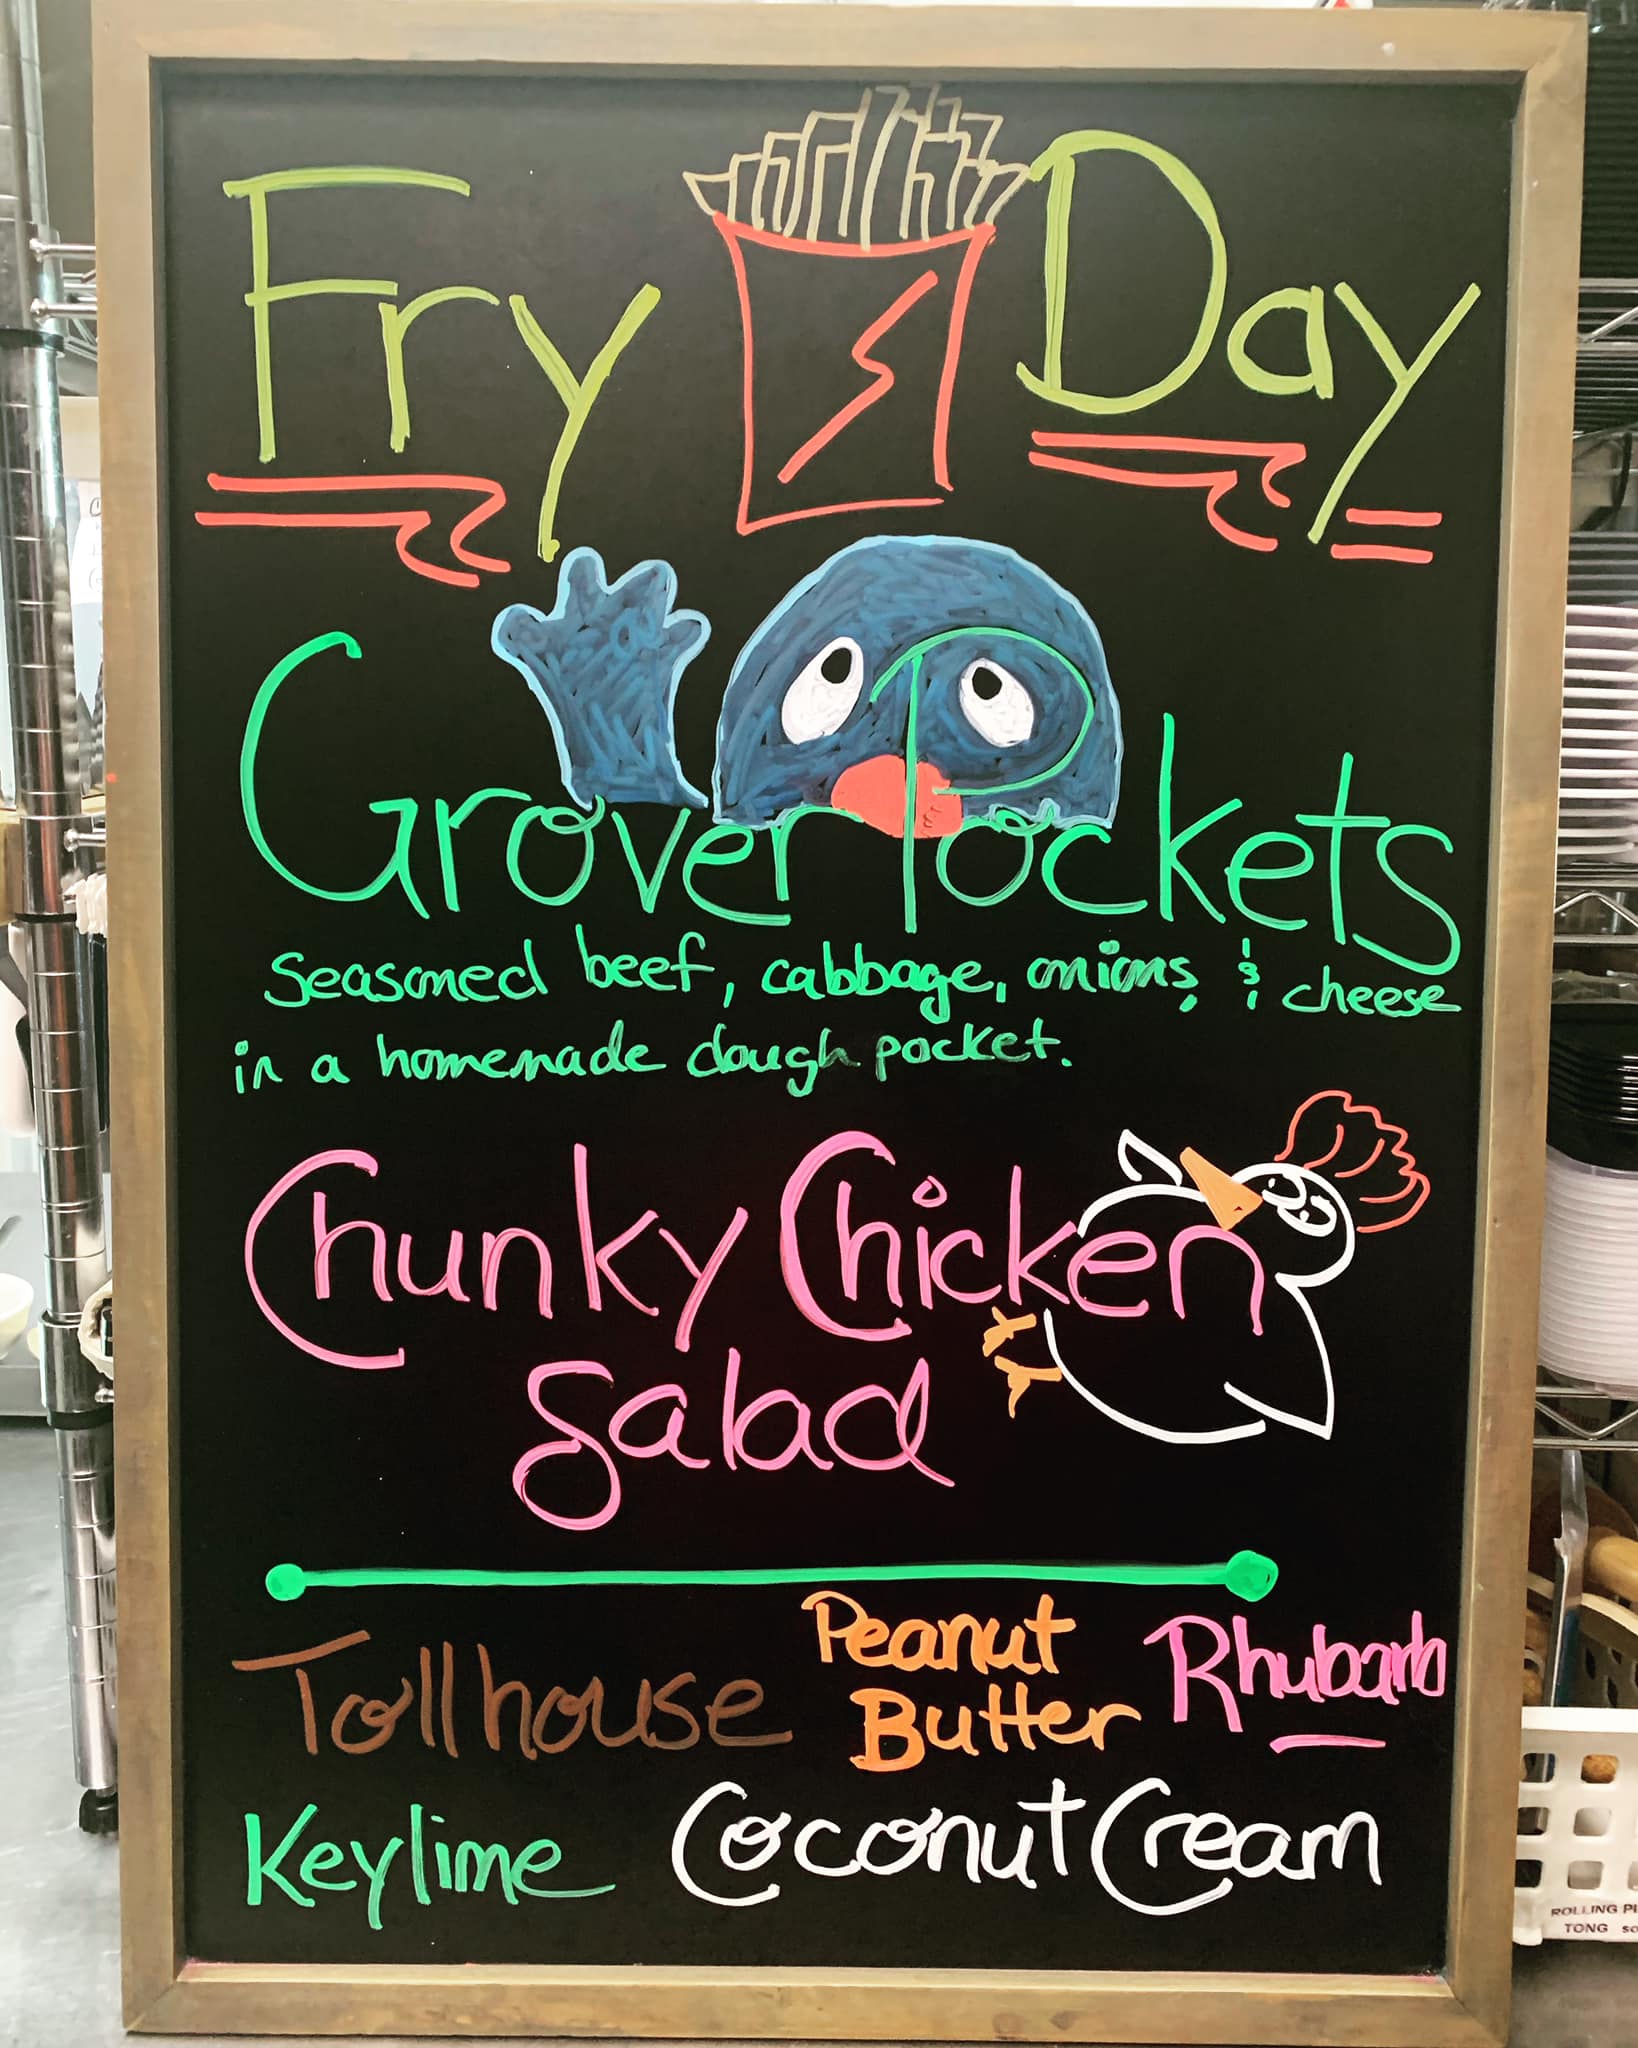 Fry Day
Grover Pockets
seasoned beef, cabbage, onions, & cheese
in a homemade dough pocket.
Chunky Chicken
Salad
Tollhouse
Peanut
Butter
Rhubarb
Keylime
Coconut Cream
ROLLING PI
TONG so